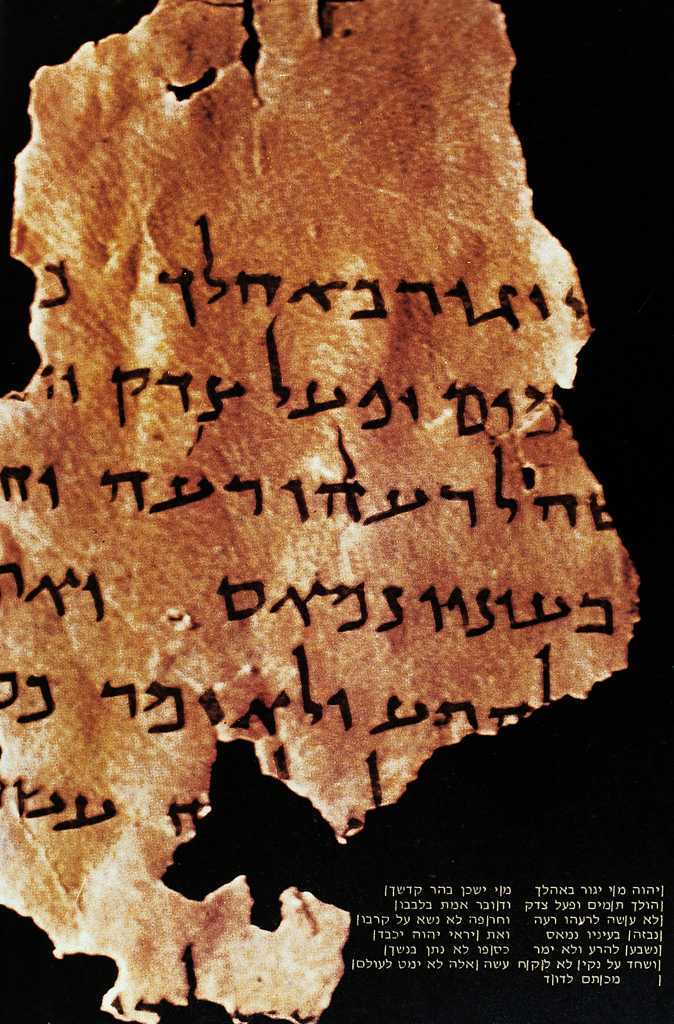 י יגור באהלך מ
מים ופעל צדק וד
שה לרעהו רעה וח
בעיניו נמאס ואת
להרע ולא ימר כס
ח עשה
[יהוה מ]י יגור באהלך מ[י ישכן בהר קדשך]
[הולך ת]מים ופעל צדק וד[ובר אמת בלבבו]
[לא ע]שה לרעהו רעה וח[רפה לא נשא על קרבו]
[נבזה] בעיניו נמאס ואת [יראי יהוה יכבד]
[נשבע] להרע ולא ימר כס[פו לא נתן בנשך]
[ושחד על נקי] לא ל[ק]ח עשה [אלה לא ימט לעולם]
[ ] מכ[תם לדוד]